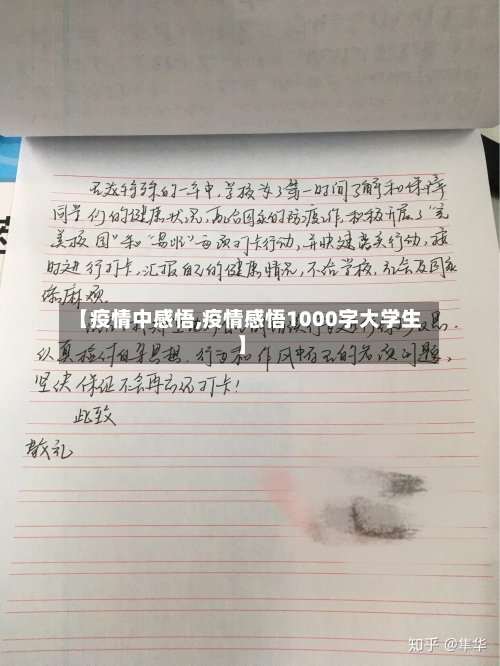 在这特殊的一年中,学校为了第一时间了解和保障
同学们的健康状况,配合国家的防疫工作,积极开展了"完
美校园"和"易班"每项打卡行动,并
时进行打卡,汇报自己的健康情况,不给学校、社会及国家
添麻烦。
【疫情中感悟,疫情感悟1000字大学生
】
认真检讨自身思想、行为和作风中存在的各项问题。
坚决保证不会再忘记打卡!
此致
敬礼
知乎 @隼华